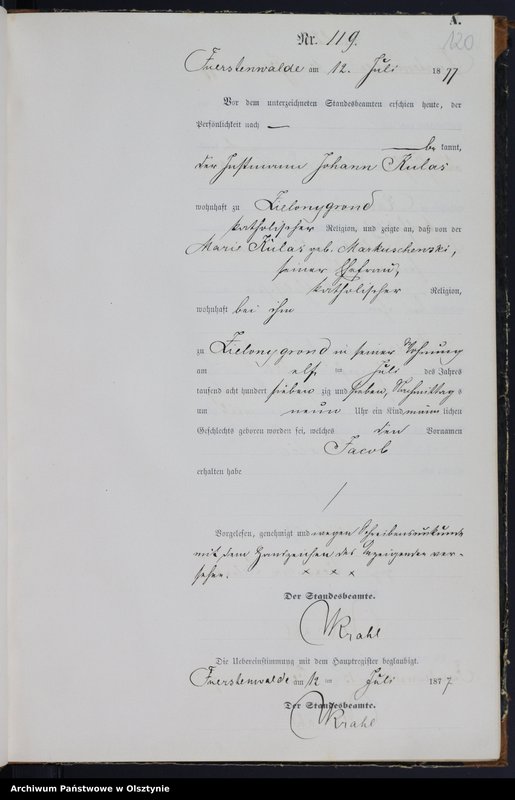 A.
120
Nr. 119.
Fuerstenwalde am 12. Juli 1877
Vor dem unterzeichneten Standesbeamten erschien heute, der
Persönlichkeit nach —
— be kannt,
der Instmann Johann Kulas
wohnhaft zu Zielonygrond
katholischer Religion, und zeigte an, daß von der
Marie Kulas geb. Markuschewski,
seiner Ehefrau,
katholischer Religion,
wohnhaft bei ihm
zu Zielonygrond in seiner Wohnung
am elf ten Juli des Jahres
tausend acht hundert sieben zig und sieben, Nachmittags
um neun Uhr ein Kind männ lichen
Geschlechts geboren worden sei, welches den Vornamen
Jacob
erhalten habe
/
Vorgelesen, genehmigt und wegen Schreibensunkunde
mit dem Handzeichen des Anzeigenden ver-
sehen. x x x
Der Standesbeamte.
Krahl
Die Uebereinstimmung mit dem Hauptregister beglaubigt.
Fuerstenwalde am 12 ten Juli 1877
Der Standesbeamte.
Krahl
Archiwum Państwowe w Olsztynie